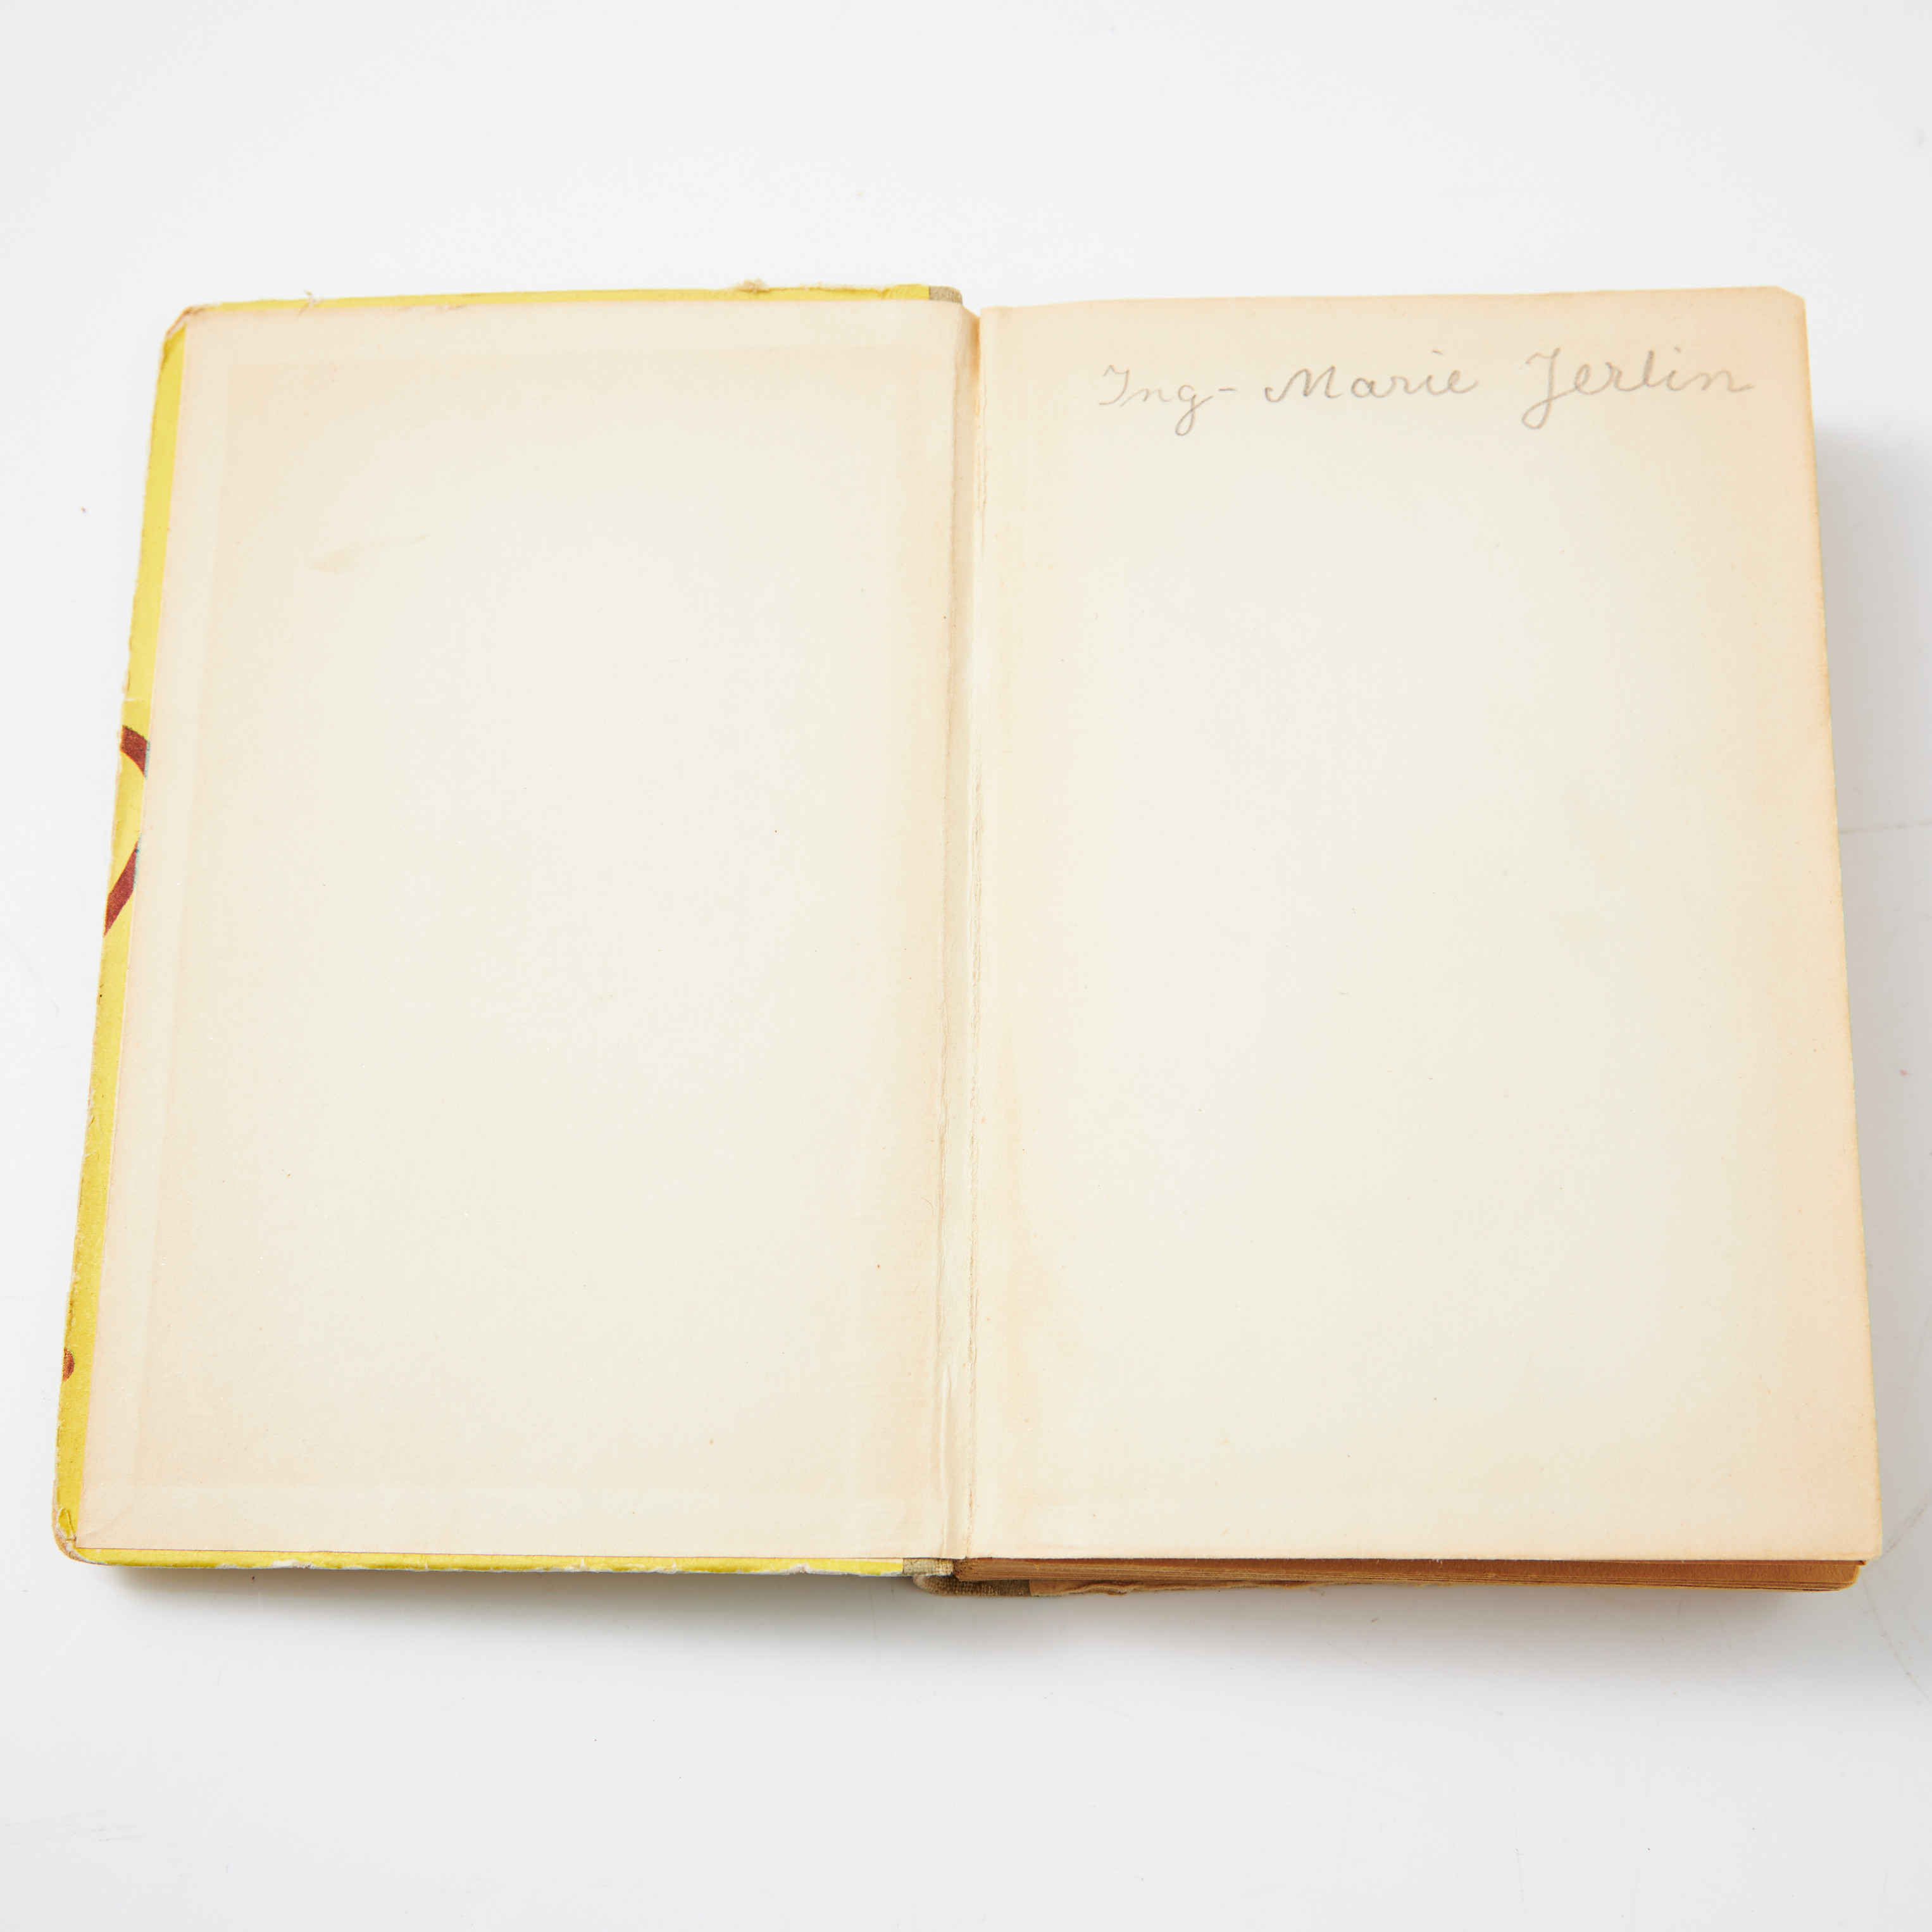 Ing-Marie Jerlin